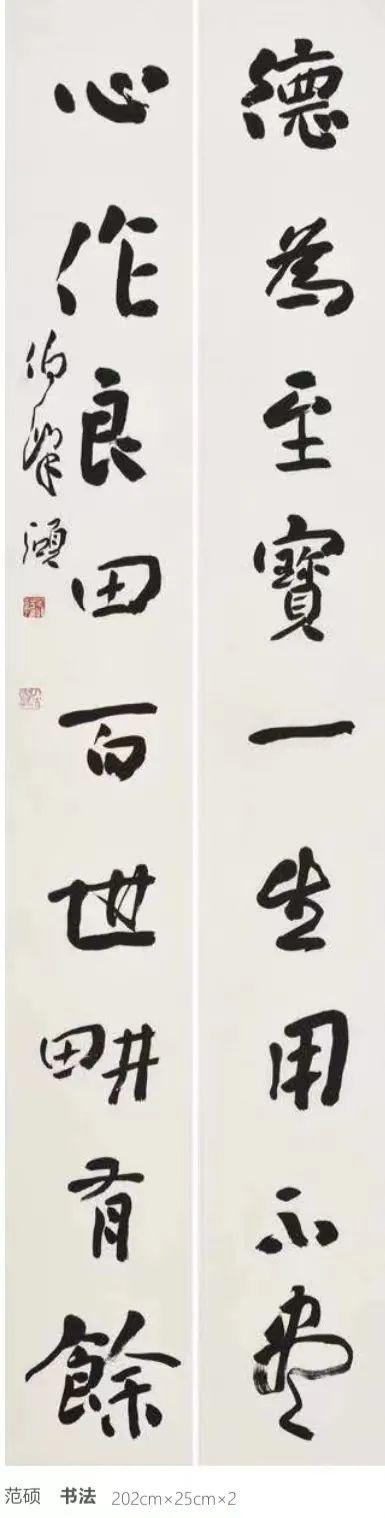 德為至寶一生用不盡
心作良田百世畊有餘
伯翠
范硕 书法 202cm×25cm×2